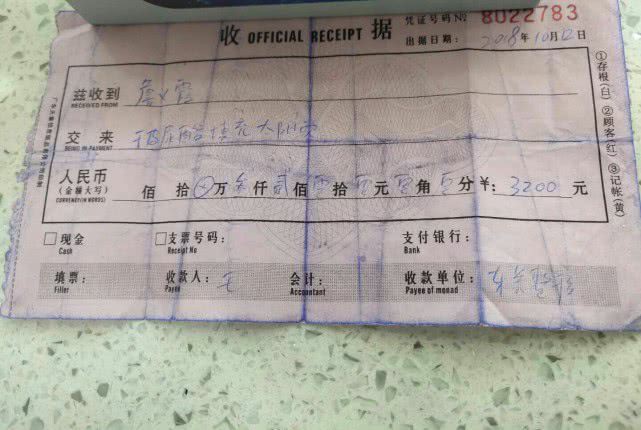 凭证号码 № 8022783
收 OFFICIAL RECEIPT 据
出据日期: 2018年10月12日
兹收到
RECEIVED FROM
交来 填充大阴
BEING IN PAYMENT
人民币
(金额大写) 佰 拾 ⊗万 叁仟 贰佰 零拾 零元 零角 零分 ¥: 3200 元
CURRENCY(IN WORDS)
①存根(白) ②顾客(红) ③记帐(黄)
□现金 □支票号码: 支付银行:
Cash Receipt No Bank
填票: 收款人: 王 会计: 收款单位:
Filler Payee Accountant Payee of monad